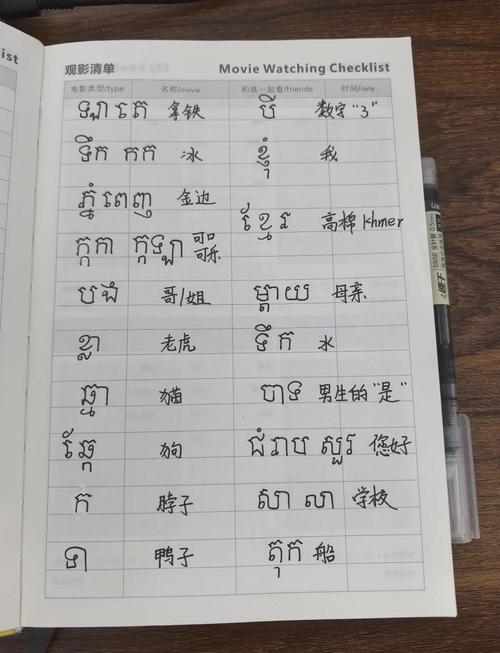 ist
观影清单 Movie Watching Checklist
电影类型/type 名称/movie 和谁一起看/friends 时间/date
ឡា តេ 拿铁 បី 数字“3”
ទឹក កក 冰 ខ្ញុំ 我
ភ្នំពេញ 金边
ខ្មែរ 高棉 Khmer
កូកា កូឡា 可口可乐
បង 哥/姐 ម្តាយ 母亲
ខ្លា 老虎 ទឹក 水
ឆ្មា 猫 បាទ 男生的“是”
ឆ្កែ 狗 ជំរាប សួរ 您好
ក 脖子 សា លា 学校
ទា 鸭子 តុក 船